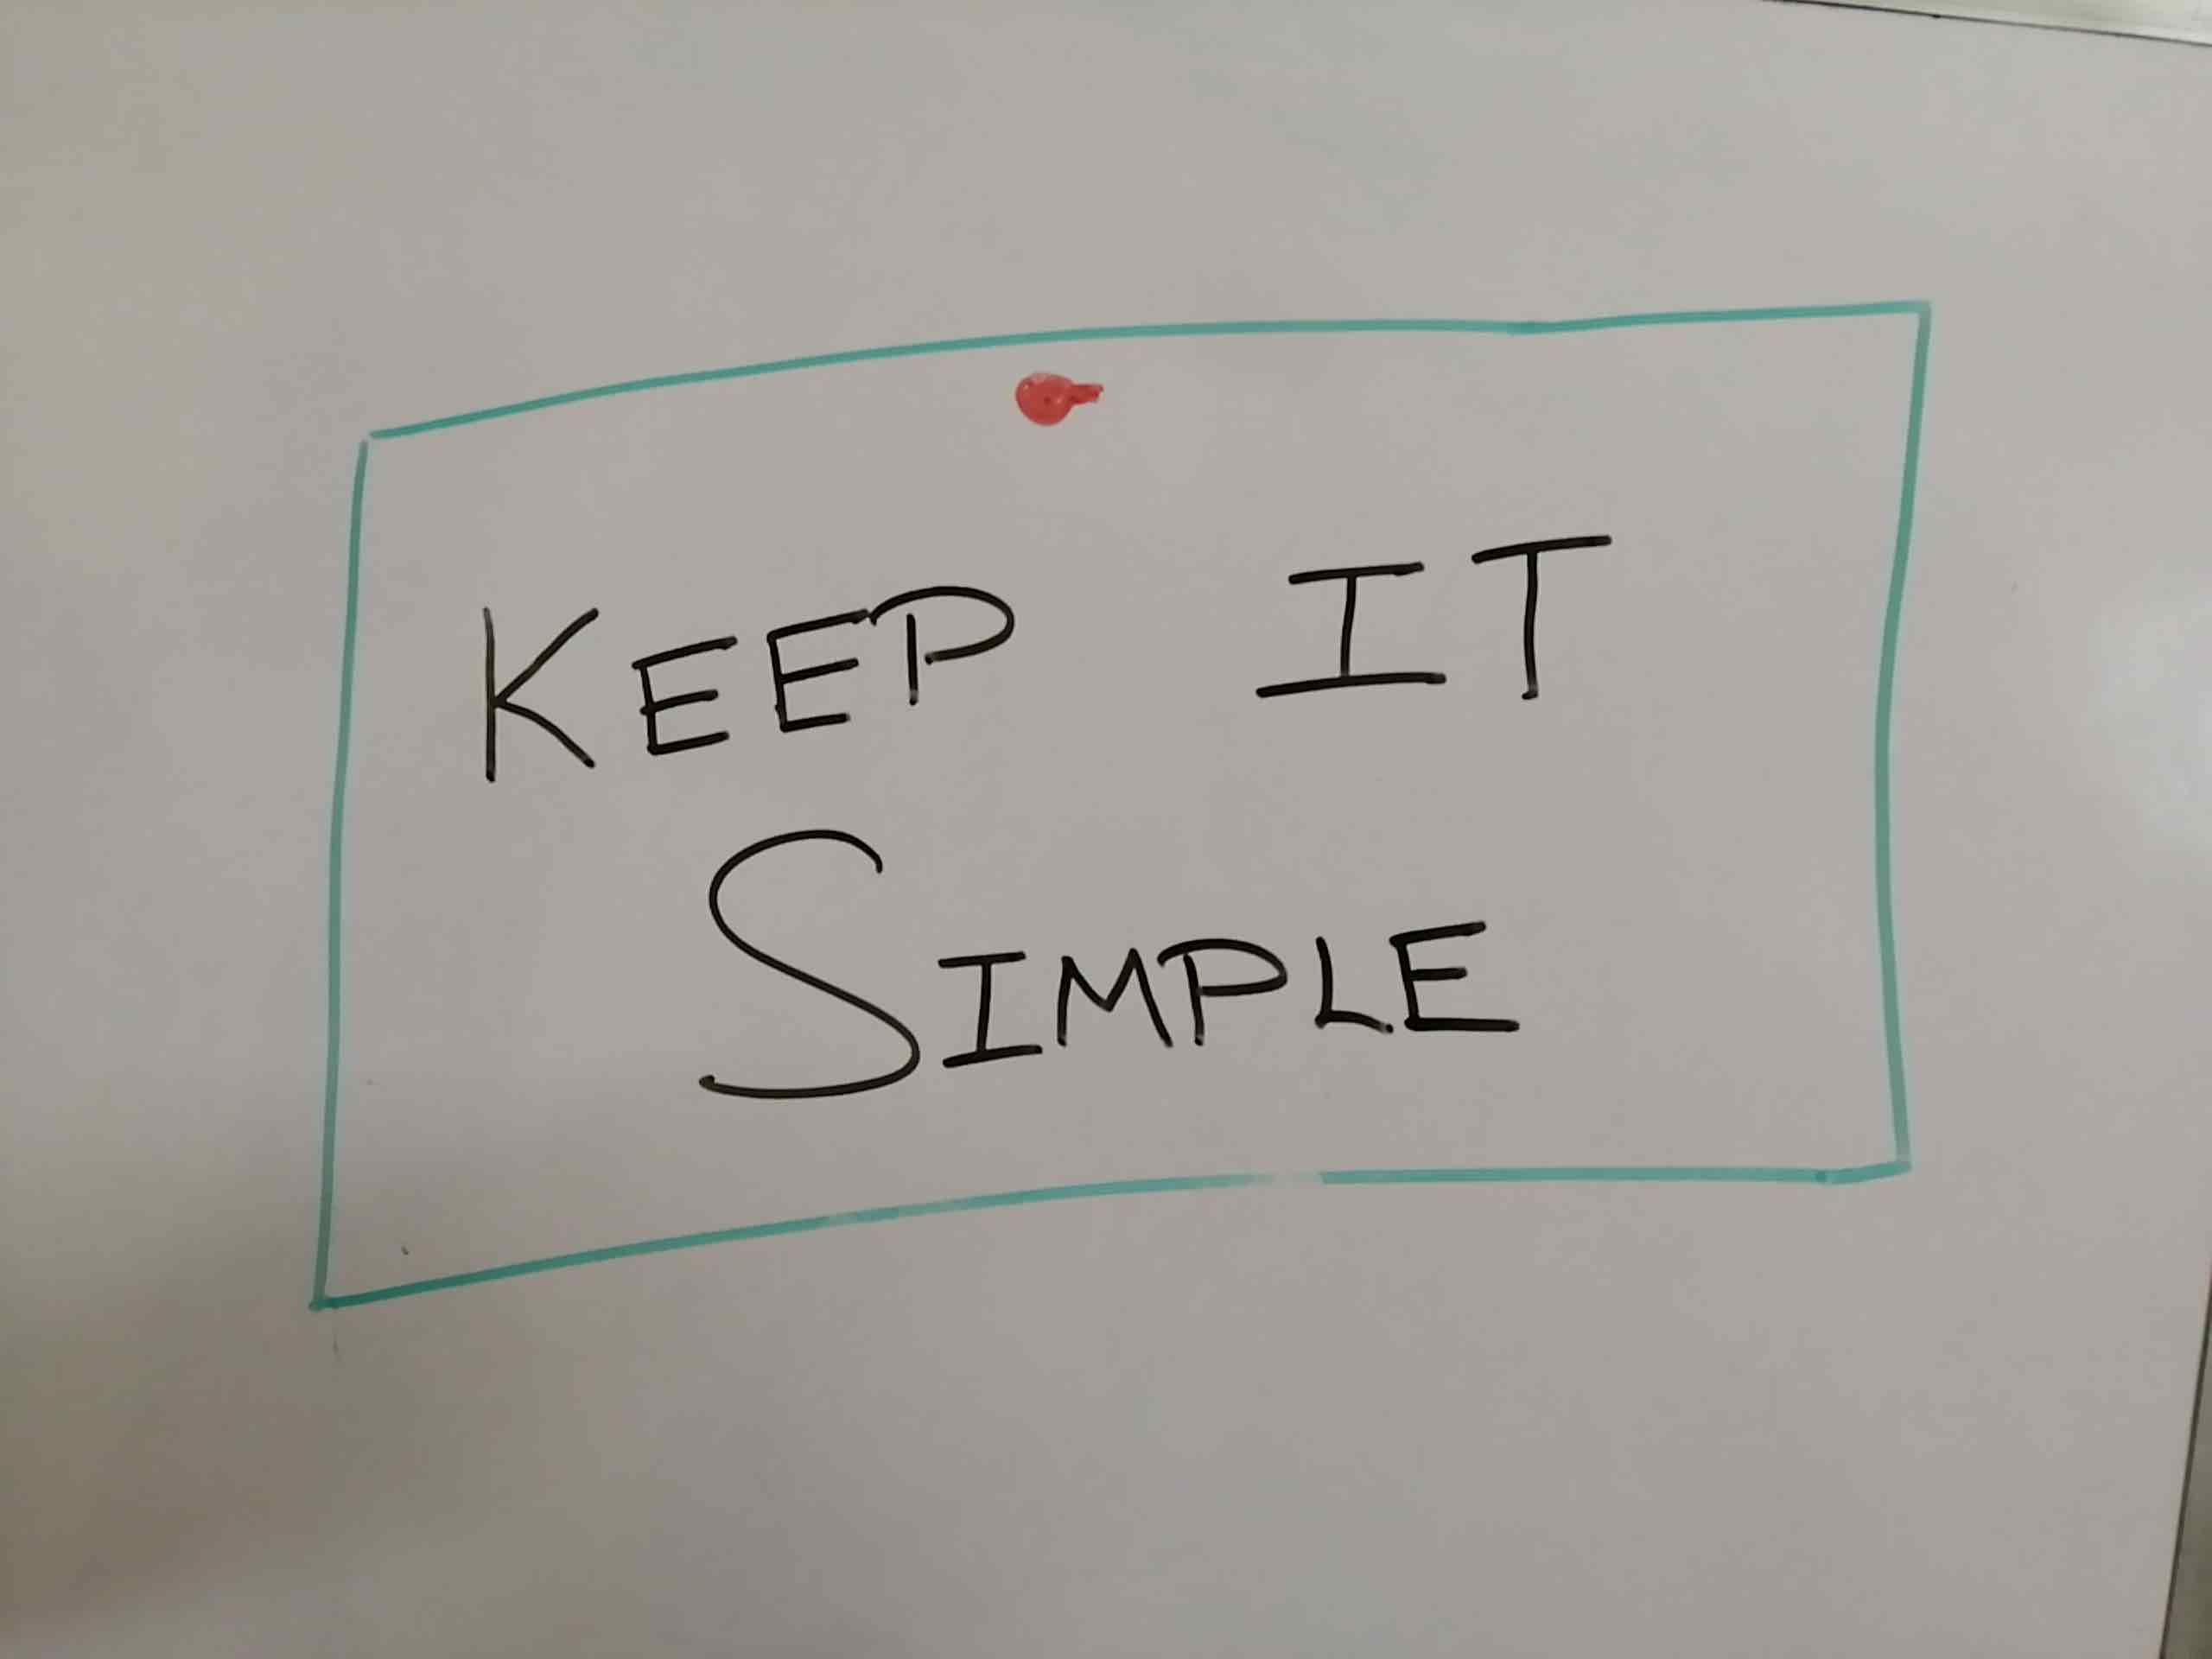 KEEP IT
SIMPLE